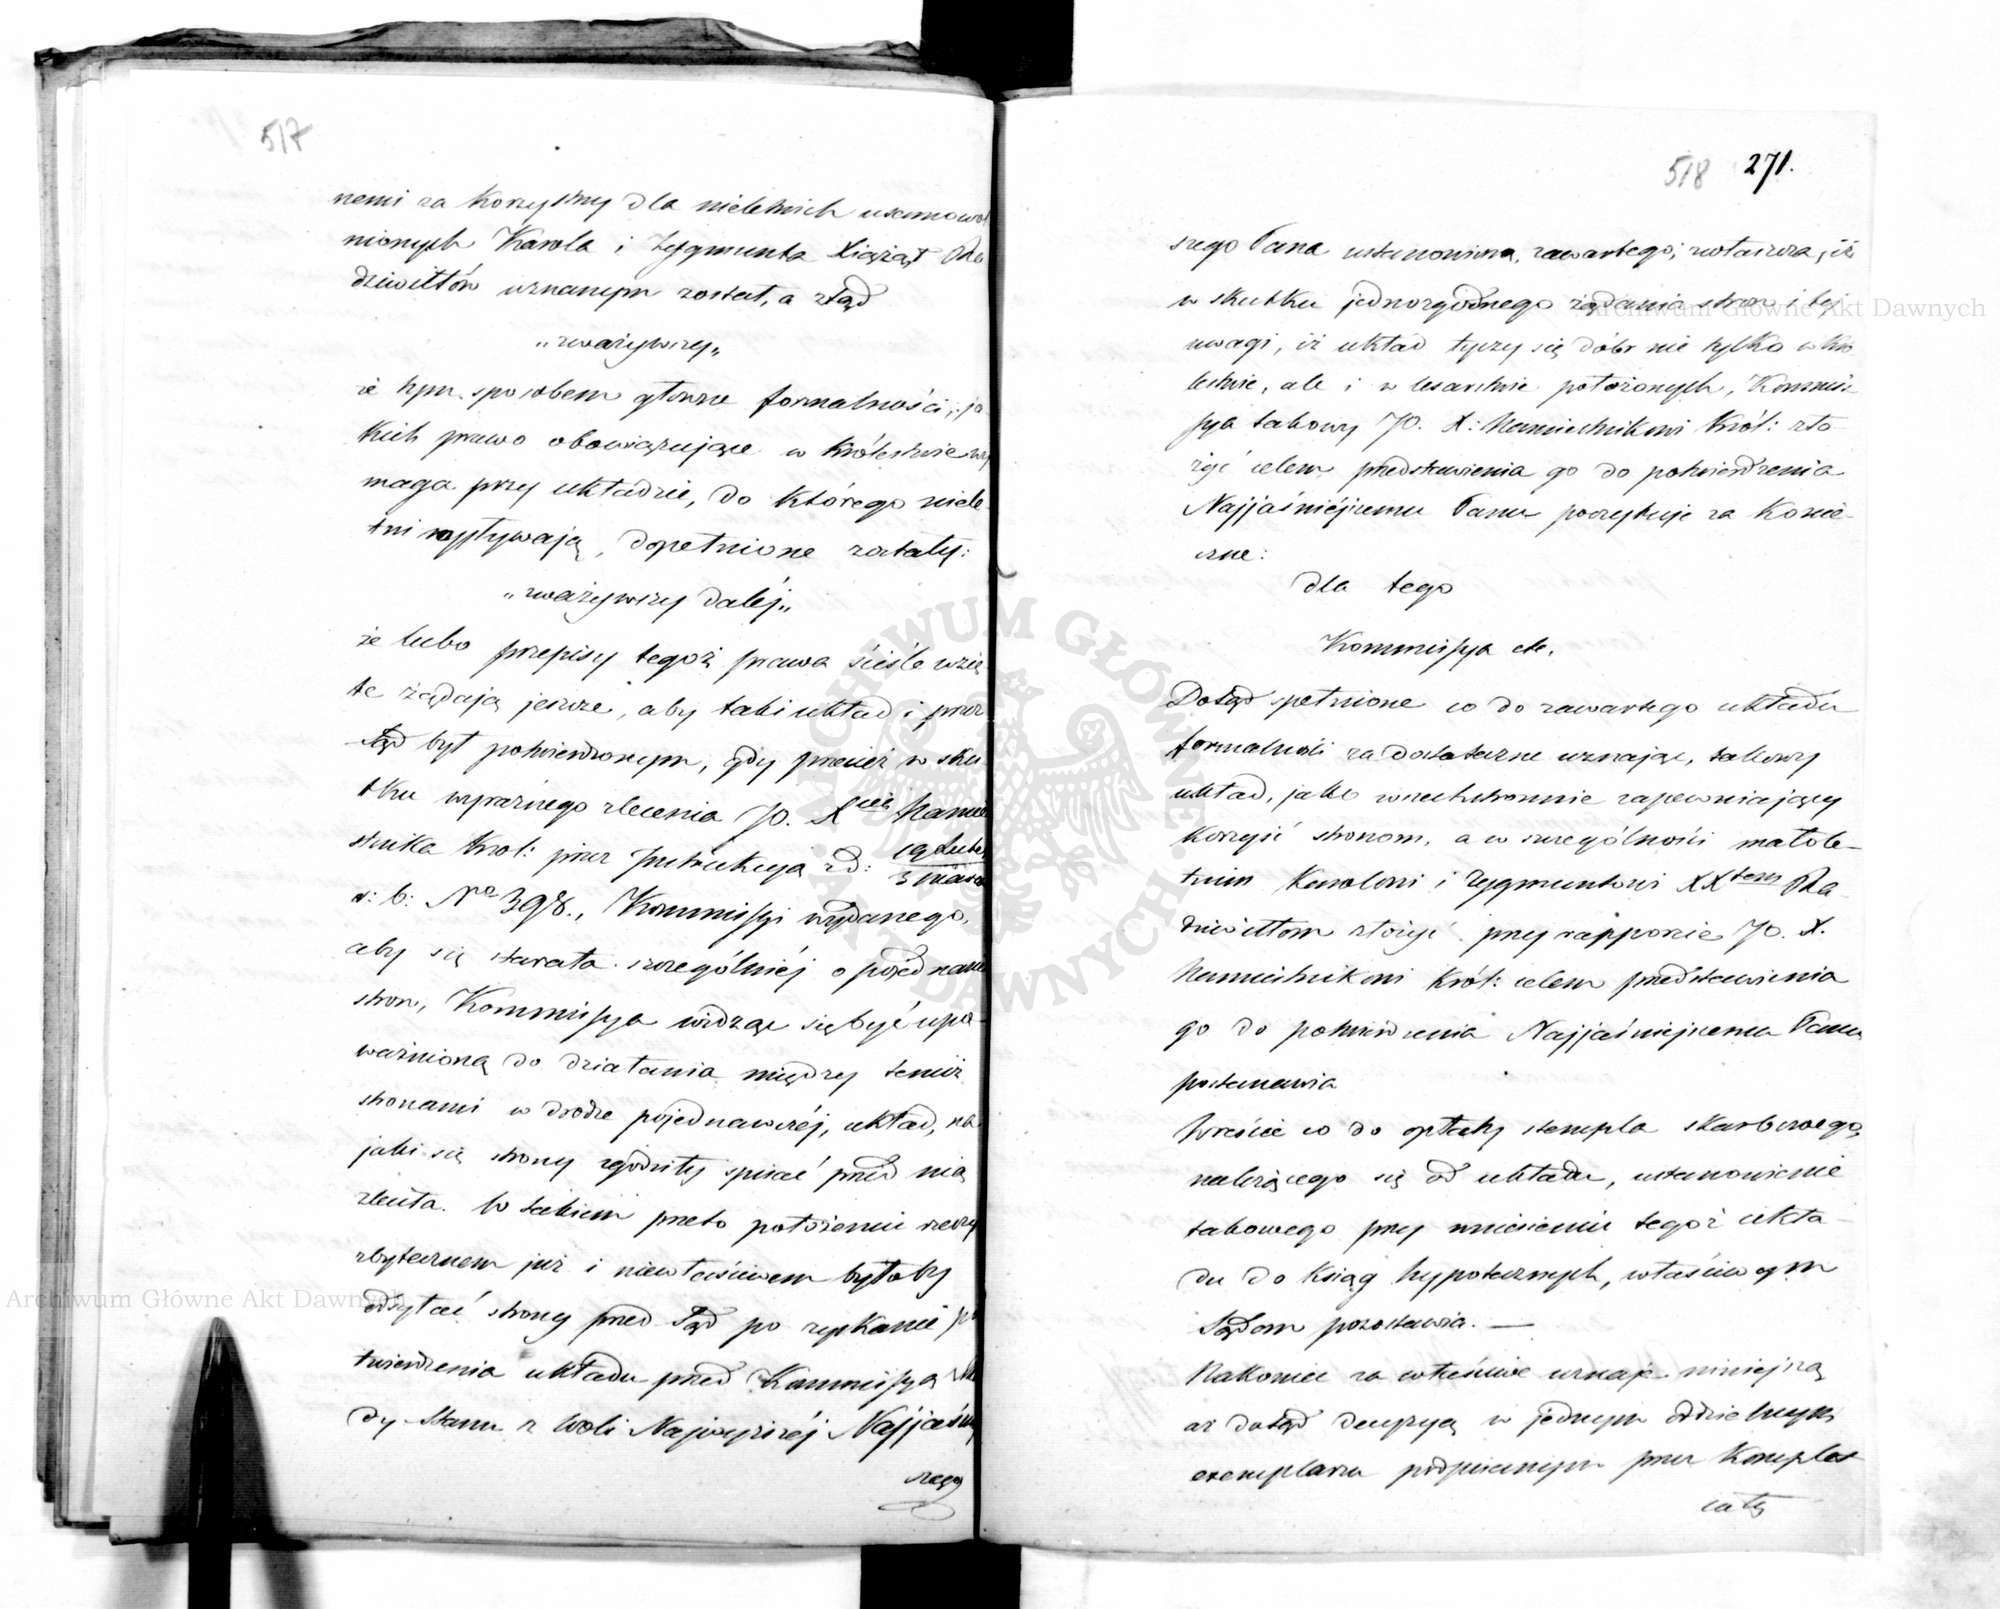 517
nemi za korzystny dla nieletnich usamowol
nionych Karola i Zygmunta Xiążąt Ra
dziwiłłów uznanym został, a ztąd
„zważywszy„
że tym sposobem główne formalności, ja
kich prawo obowiązujące w Królestwie wy
maga przy układzie, do którego niele
tni wpływają, dopełnione zostały:
„zważywszy daléj„
że lubo przepisy tegoż prawa ściśle wzię
te żądają jeszcze, aby taki układ i przez
Sąd był potwierdzonym, gdy przecież w sku
tku wyraźnego zlecenia JO. Xcia Namie
stnika Król: przez Instrukcyą zd: 19 Lutego
3 Marca
r: b: No 398., Kommissyi wydanego,
aby się starała szczególniéj o pojednanie
stron, Kommissya widząc się być upo
ważnioną do działania między temiż
stronami w drodze pojednawczéj, układ, na
jaki się strony zgodziły spisać przed nią
zleciła. W takiem przeto położeniu rzeczy
zbytecznem już i niewłaściwem byłoby
odsyłać strony przed Sąd po zyskanie po
twierdzenia układu przed Kommissyą Ra
dy Stanu z Woli Najwyższéj Najjaśniej
szego
518 271.
szego Pana ustanowioną, zawartego; zwłaszcza, iż
w skutku jednozgodnego żądania stron i tej
uwagi, iż układ tyczy się dóbr nie tylko w Kró
lestwie, ale i w Cesarstwie położonych, Kommis
sya takowy JO. X: Namiestnikowi Król: zło
żyć celem przedstawienia go do potwierdzenia
Najjaśniejszemu Panu poczytuje za konie-
czne:
dla tego
Kommissya etc.
Dotąd spełnione co do zawartego układu
formalności za dostateczne uznając, takowy
układ, jako wszechstronnie zapewniający
korzyść stronom, a w szczególności małole-
tnim Karolowi i Zygmuntowi XXtom Ra-
dziwiłłom złożyć przy rapporcie JO. X.
Namiestnikowi Król: celem przedstawienia
go do potwierdzenia Najjaśniejszemu Panu
postanawia
Wreście co do opłaty stempla skarbowego,
należącego się od układu, ustanowienie
takowego przy wniesieniu tegoż ukła-
du do Ksiąg hypotecznych, właściwym
Sądom pozostawia. —
Nakoniec za właściwe uznaje niniejszą
aż dotąd decyzyą w jednym oddzielnym
exemplarzu podpisanym przez Komplet
cały
Archiwum Główne Akt Dawnych
Archiwum Główne Akt Dawnych
ARCHIWUM GŁÓWNE AKT DAWNYCH